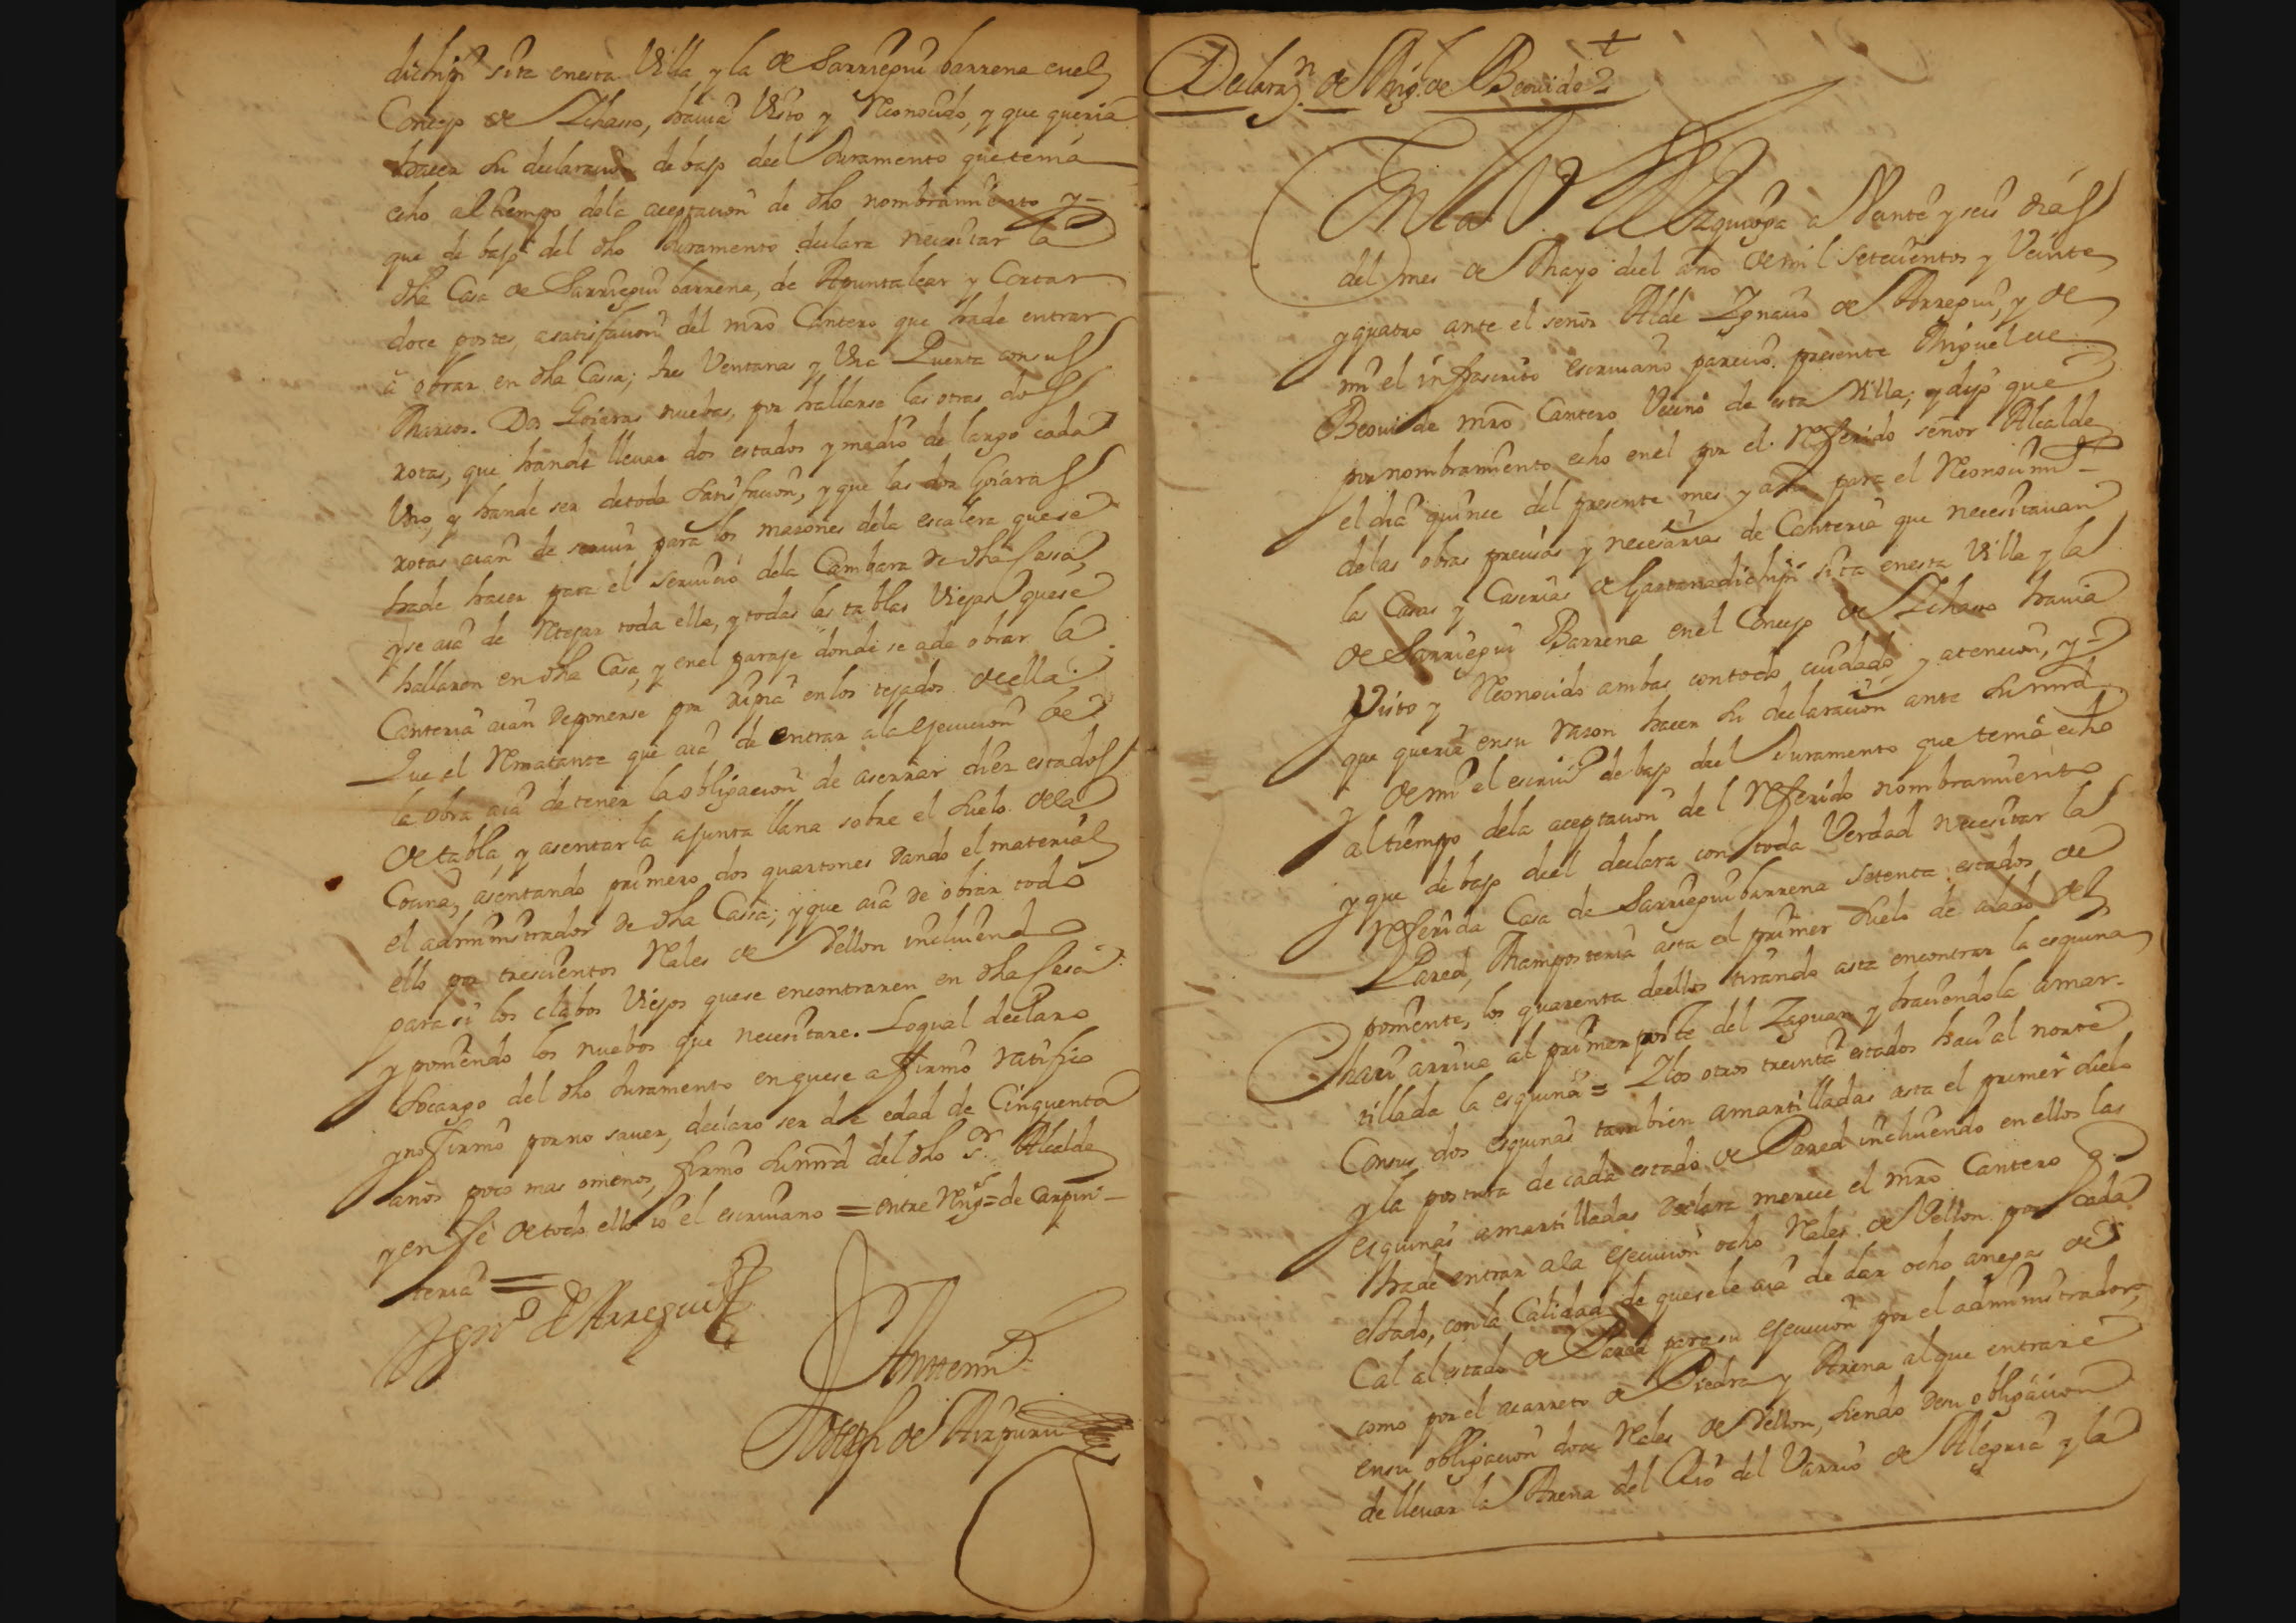 dichipi sita enesta Villa y la de Sarriegui barrena enel
Concejo de Ichasso, havia Visto y Reconocido, y que queria
hacer su declaracion debajo del Juramento que tenia
echo al tiempo dela aceptacion de dho nombramiento y
que debajo del dho Juramento declara necesitar la
dha Casa de Sarriegui barrena, de Apuntalear y Cortar
doce postes, asatisfacion del mro Cantero que hade entrar
a obrar en dha Cassa; tres Ventanas y Una Puerta consus
Marcos. Dos Goiaras nuebas, por hallarse las otras dos
rotas, que hande llevar dos estados y medio de largo cada
Uno, y hande ser detoda satisfacion, y que las dos Goiaras
rotas aian de servir para los mazones dela escalera quese
hade hacer para el servicio dela Cambara de dha Cassa,
yse aia de Retejar toda ella, y todas las tablas Viejas quese
hallaren en dha Casa, y enel paraje donde se ade obrar la
Canteria aian deponerse por ripia enlos tejados deella.
Que el Rematante que aia de entrar ala ejecucion de
la obra aia detener la obligacion de aserrar diez estados
de tabla, y asentarla ajunta llana sobre el suelo dela
Cocina, asentando primero dos quartones dando el material
el administrador de dha Cassa; y que aia de obrar todo
ello por trescientos Reales de Vellon incluiendo
para si los clabos Viejos quese encontraren en dha Casa
y poniendo los nuebos que necesitare. Loqual declaro
socargo del dho Juramento enquese afirmo ratifico
yno firmo por no saver, declaro ser de edad de Cinquenta
años poco mas omenos, firmo su mrd del dho Sr. Alcalde
yen fe de todo ello io el escrivano = entre Rengs = de Carpin-
teria =
Igno de Arregui
Antemi
Joseph de Aizpuru
Declaraon. de Migl. de Beovide
En la V. de Azpeitia a Vante y seis dias
del mes de Mayo del año de mil setecientos y Veinte
yquatro ante el señor Alde Ignacio de Arregui, y de
mi el infrascrito escrivano parecio presente Miguel de
Beovide mro Cantero Vecino de esta Villa; y dijo que
por nombramiento echo enel por el Referido señor Alcalde
el dia quince del presente mes y año para el Reconocimto
delas obras precisas y necesarias de Canteria que necesitavan
las Casas y Caserias de Gaztanadichipi sita enesta Villa y la
de Sarriegui Barrena enel Concejo de Ichasso havia
Visto y Reconocido ambas contodo cuidado y atencion, y
que queria ensu razon hacer su declaracion ante su mrd
y de mi el escrivo debajo del Juramento que tenia echo
al tiempo dela aceptacion del Referido nombramiento
y que debajo del declara con toda Verdad necesitar la
Referida Casa de Sarriegui barrena setenta estados de
Pared, Mamposteria asta el primer suelo de alado del
poniente, los quarenta deellos tirando asta encontrar la esquina
hacia arriva al primer poste del Zaguan y haciendola amar-
tillada la esquina = Ylos otros treinta estados hacia al norte
Consus dos esquinas tambien amartilladas asta el primer suelo
y la postura de cada estado de Pared incluiendo en ellos las
esquinas amartilladas declara merece el mro Cantero q.
hade entrar ala ejecucion ocho Reales de Vellon por cada
estado, con la Calidad de quesele aia de dar ocho anegas de
Cal al estado de Pared parasu ejecucion por el administrador,
como por el acarreto de Piedra y Arena al que entrare
ensu obligacion doce Reales de Vellon, siendo desu obligacion
de llevar la Arena del Rio del Varrio de Alegria y la